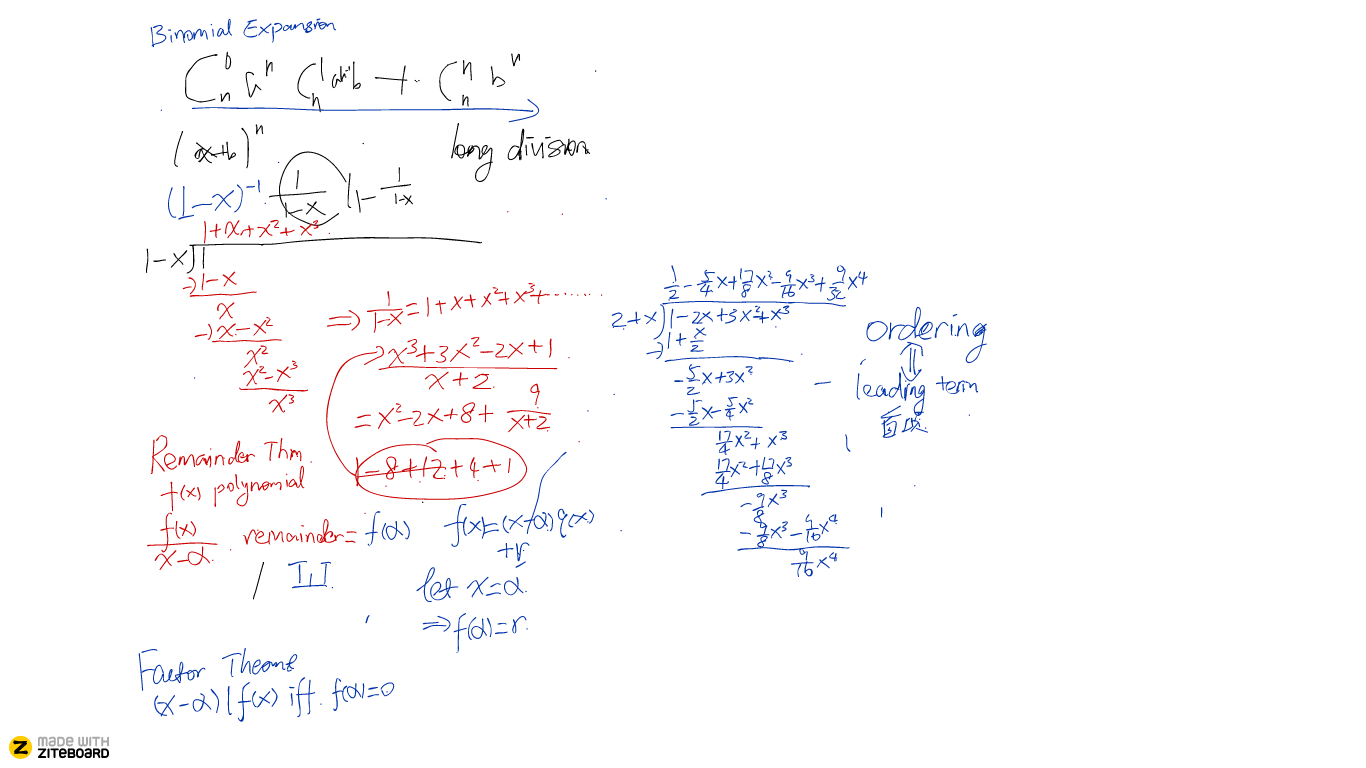 Binomial Expansion
C_n^0 a^n C_n^1 a^{n-1}b + ·· C_n^n b^n
(x+b)^n
long division
(1-x)^{-1} 1/(1-x) 1 - 1/(1-x)
1+x+x²+x³
1-x)1
→1-x
x
→x-x²
x²
x²-x³
x³
⇒ 1/(1-x) = 1+x+x²+x³+······
→ (x³+3x²-2x+1)/(x+2)
= x²-2x+8+ 9/(x+2)
-8+12+4+1
Remainder Thm.
f(x) polynomial
f(x)/(x-α). remainder = f(α)
f(x)=(x-α)q(x)
+r
let x=α.
⇒f(α)=r.
Factor
(x-α)|f(x) iff. f(α)=0
1/2 - 5/4 x + 17/8 x² - 9/16 x³ + 9/32 x⁴
2+x)1-2x+3x²+x³
→1+x/2
-5/2 x+3x²
-5/2 x-5/4 x²
17/4 x²+x³
17/4 x²+17/8 x³
-9/8 x³
-9/8 x³-9/16 x⁴
9/16 x⁴
ordering
⇕
leading term
首项
MADE WITH
ZITEBOARD